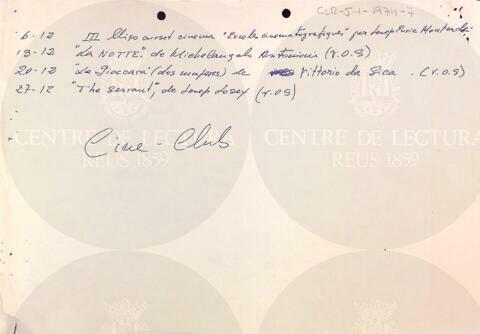 CLR-5-1-1974-7
6-12 III Llliço curset cinema "Escoles cinematografiques" per Josep
13-12 "La NOTTE" de Michelangelo Antonioni (V.O.S)
20-12 "La Giocoara" (dos mujeres) de Vittorio da Sica. (V.O.S)
27-12 "The servant", de Josep Losey (V.O.S)
CENTRE DE LECTURA
REUS 1859
CENTRE DE LECTURA
REUS 1859
Cine-Club